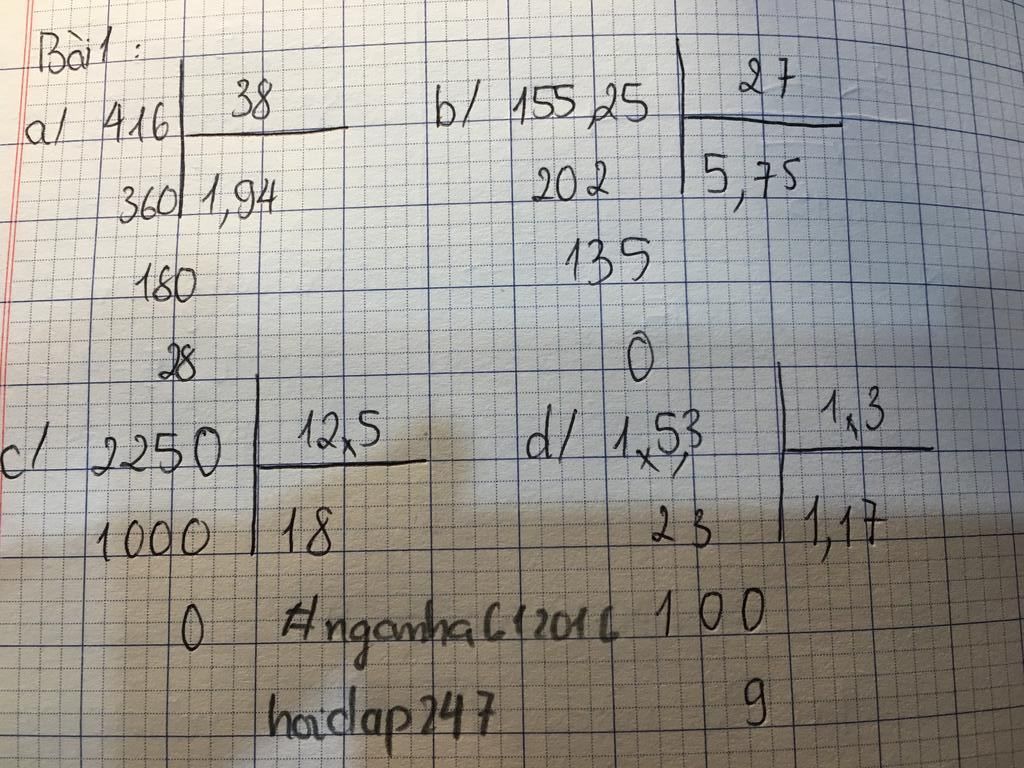 Bài 1 :
a/ 416 38
360 1,94
180
28
b/ 155,25 27
202 5,75
135
0
c/ 2250 12,5
1000 18
0
d/ 1,5,3 1,3
23 1,17
100
9
#nganha612016
hoidap247